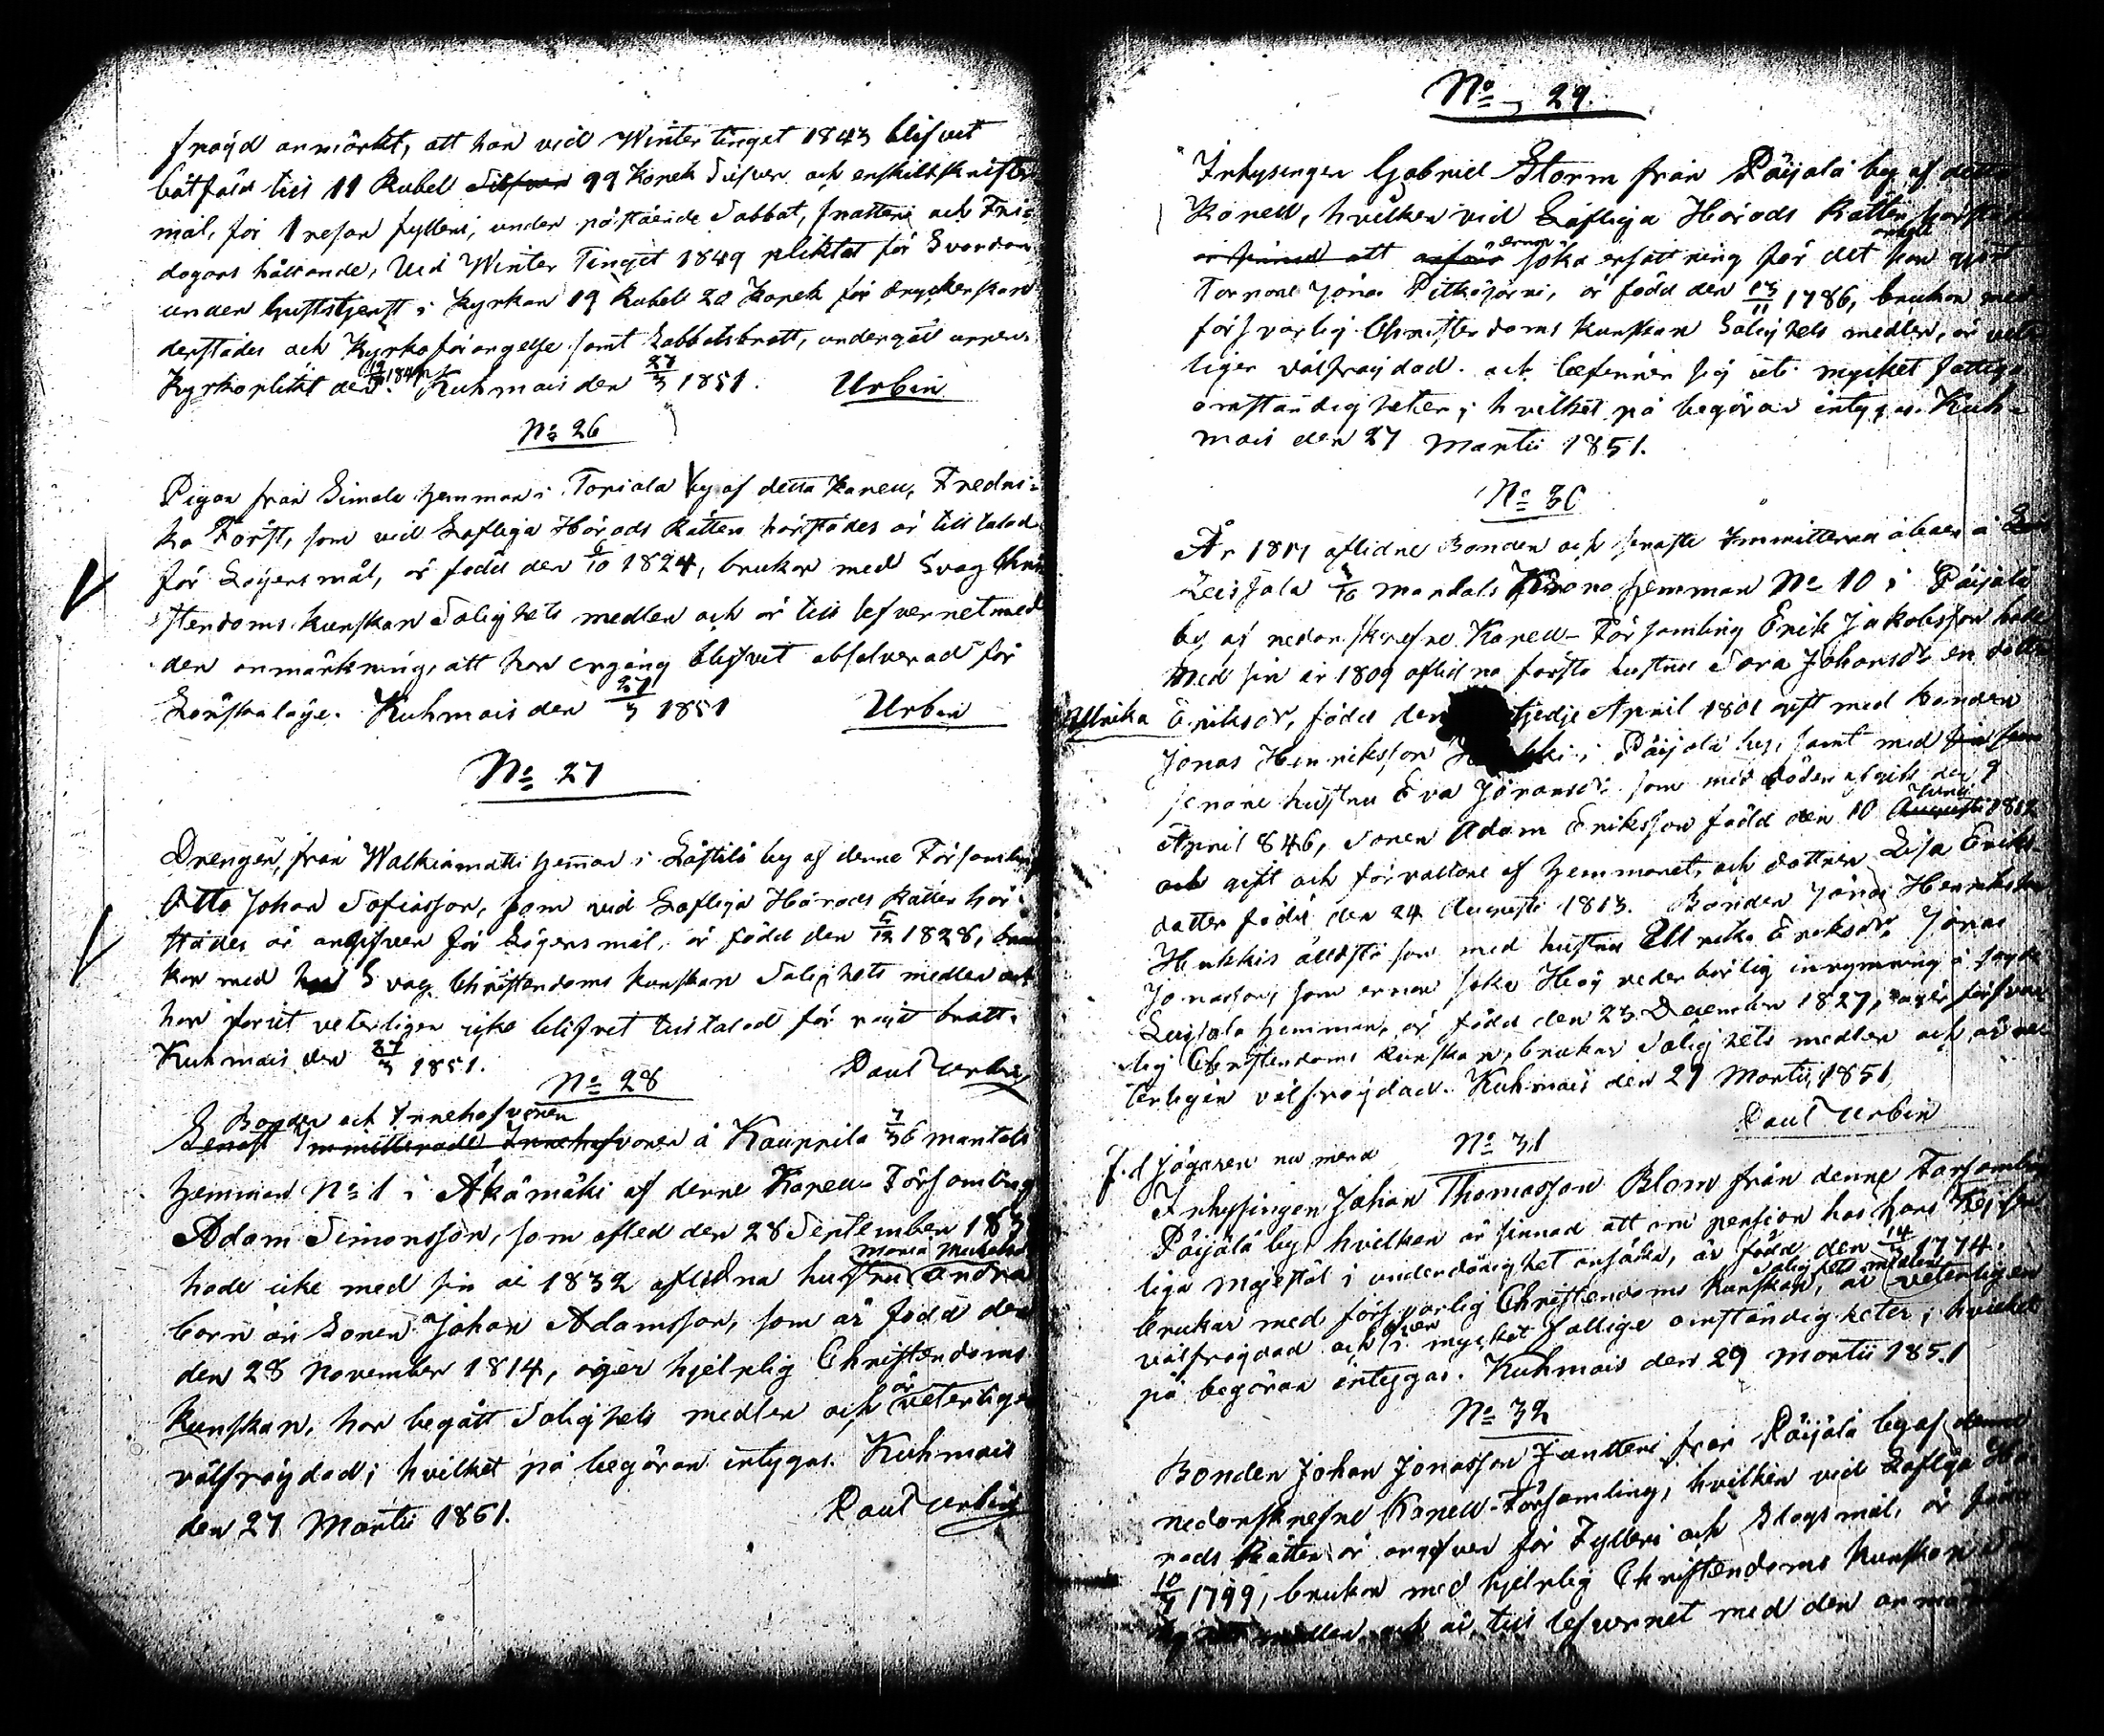 fräjd anmärkt, att han vid Winter tinget 1843 blifvit
bötfäld till 11 Rubel Silfver 99 Kopek Silfver och enskild skrifter-
mål, för 1 resan fylleri, under påstående Sabbat, fratteri och Fri-
dagars hållande, Vid Winter Tinget 1849 pliktat för Svordom
under Gudstjenst i Kyrkan 19 Rubel 20 Kopek för dryckenskap
derstädes och Kyrkoförargelse samt Sabbatsbrott, undergått uppen-
Kyrkoplikt den 1849. Kuhmois den 27/3 1851. Urbin
No 26
Pigan från Simola hemman i Toriala by af detta Kapell, Fredri-
ka Förs̈t, som vid Lofliga Härads Rätten härstädes är till talad
för Lägersmål, är född den 6/10 1824, brukar med Svag Chri-
stendoms kunskap Salighets medlen och är till lefvernet med
den anmärkning, att hon engång blifvit absolverad för
Lönskaläge. Kuhmois den 27/3 1851 Urbin
No 27
Drengen från Walkiamatti hemman i Lästilä by af denne Församling
Otto Johan Sefiasson, som vid Lofliga Härads Rätten här-
städes är angifven för Lägersmål, är född den 5/12 1828, bru-
kar med Svag Christendoms kunskap Salighets medlen och
har förut veterligen icke blifvit tilltalad för något brott.
Kuhmois den 27/3 1851. Paul Urbin
No 28
Bonden och Innehafvaren
Senast Immitterade Innehafvaren å Kauppila 7/36 mantals
hemman No 1 i Äkämäki af denne Kapell-Församling
Adam Simonsson, som afled den 28 September 183
Maria Michelsdr
hade icke med sin år 1832 aflidna hustru andra
barn än Sonen Johan Adamsson, som är född den
den 28 November 1814, äger hjelplig Christendoms
är
kunskap, har begått Salighets medlen och veterligen
välfräjdad; hvilket på begäran intygas. Kuhmois
den 27 Martii 1851. Paul Urbin
No 29.
Inhysingen Gabriel Storm från Päijälä by af detta
Kapell, hvilken vid Lofliga Härads Rätten härstädes
ernar enkelt
är sinnad att söka ersättning för det han gjort
Torpare Jonas Pitkäjärvi, är född den 13/11 1786, brukar med
försvarlig Christendoms kunskap Salighets medlen, är veter-
ligen välfräjdad och befinner sig uti mycket fattiga
omständigheter; hvilket på begäran intygas. Kuh-
mois den 27 Martii 1851.
No 30
År 1817 aflidne Bonden och senaste Immitterad åboen å
Leisjala 1/16 mantals Krono hemman No 10 i Päijälä
by af nedanskrefne Kapell-Församling Erik Jakobsson hade
med sin år 1809 aflidna första hustru Sara Johansdr en dotter
Ulrika Eriksdr, född den tjedje April 1801 gift med bonden
Jonas Henriksson i Päijälä by, samt med sin
senare hustru Eva Jöransdr som med döden afgick den 9
Junii
April 846, Sonen Adam Eriksson född den 10 Augusti 1812
och gift och förvaltare af hemmanet, och dottren Lisa Eriks
dotter född den 24 Augusti 1813. Bonden Jonas Henriksson
Hukkis älldsta son med hustru Ulrika Eriksdr, Jonas
Jonasson, som ernar söka Hög vederbörlig inrymning å sagde
Leisjala hemman, är född den 23 December 1827, äger försvar-
lig Christendoms kunskap, brukar Salighets medlen och är ve-
terligen välfräjdad. Kuhmois den 27 Martii 1851
Paul Urbin
No 31
F.d Jägaren nu mera
Inhysingen Johan Thomasson Blom från denne Församling
Päijälä by, hvilken är sinnad att om pension hos hans Kejser-
liga Majestät i underdånighet ansöka, är född den 14/3 1774.
Salighets medlen
brukar med försvarlig Christendoms kunskap, är veterligen
lefver
välfräjdad och i mycket fattige omständigheter; hvilket
på begäran intygas. Kuhmois den 29 Martii 1851
No 32
Bonden Johan Jonasson Jantteri från Päijälä by af denne
nedanskrefne Kapell-Församling, hvilken vid Lofliga Hä-
rads Rätten är angifven för Fylleri och Slagsmål, är född
10/7 1799, brukar med hjelplig Christendoms kunskap
medlen och är till lefvernet med den anmärk